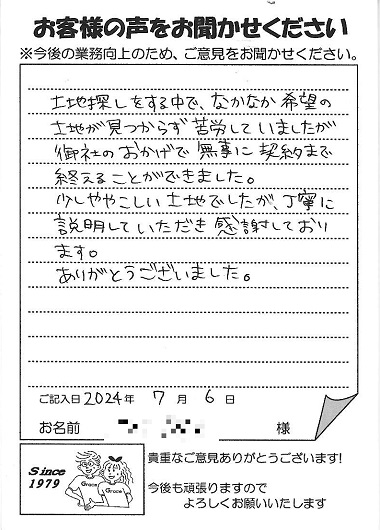 お客様の声をお聞かせください
※今後の業務向上のため、ご意見をお聞かせください。
土地探しをする中で、なかなか希望の
土地が見つからず苦労していましたが
御社のおかげで無事に契約まで
終えることができました。
少しややこしい土地でしたが、丁寧に
説明していただき感謝しており
ます。
ありがとうございました。
ご記入日 2024年 7月 6日
お名前 様
Since
1979
Grace
Grace
貴重なご意見ありがとうございます!
今後も頑張りますので
よろしくお願いいたします